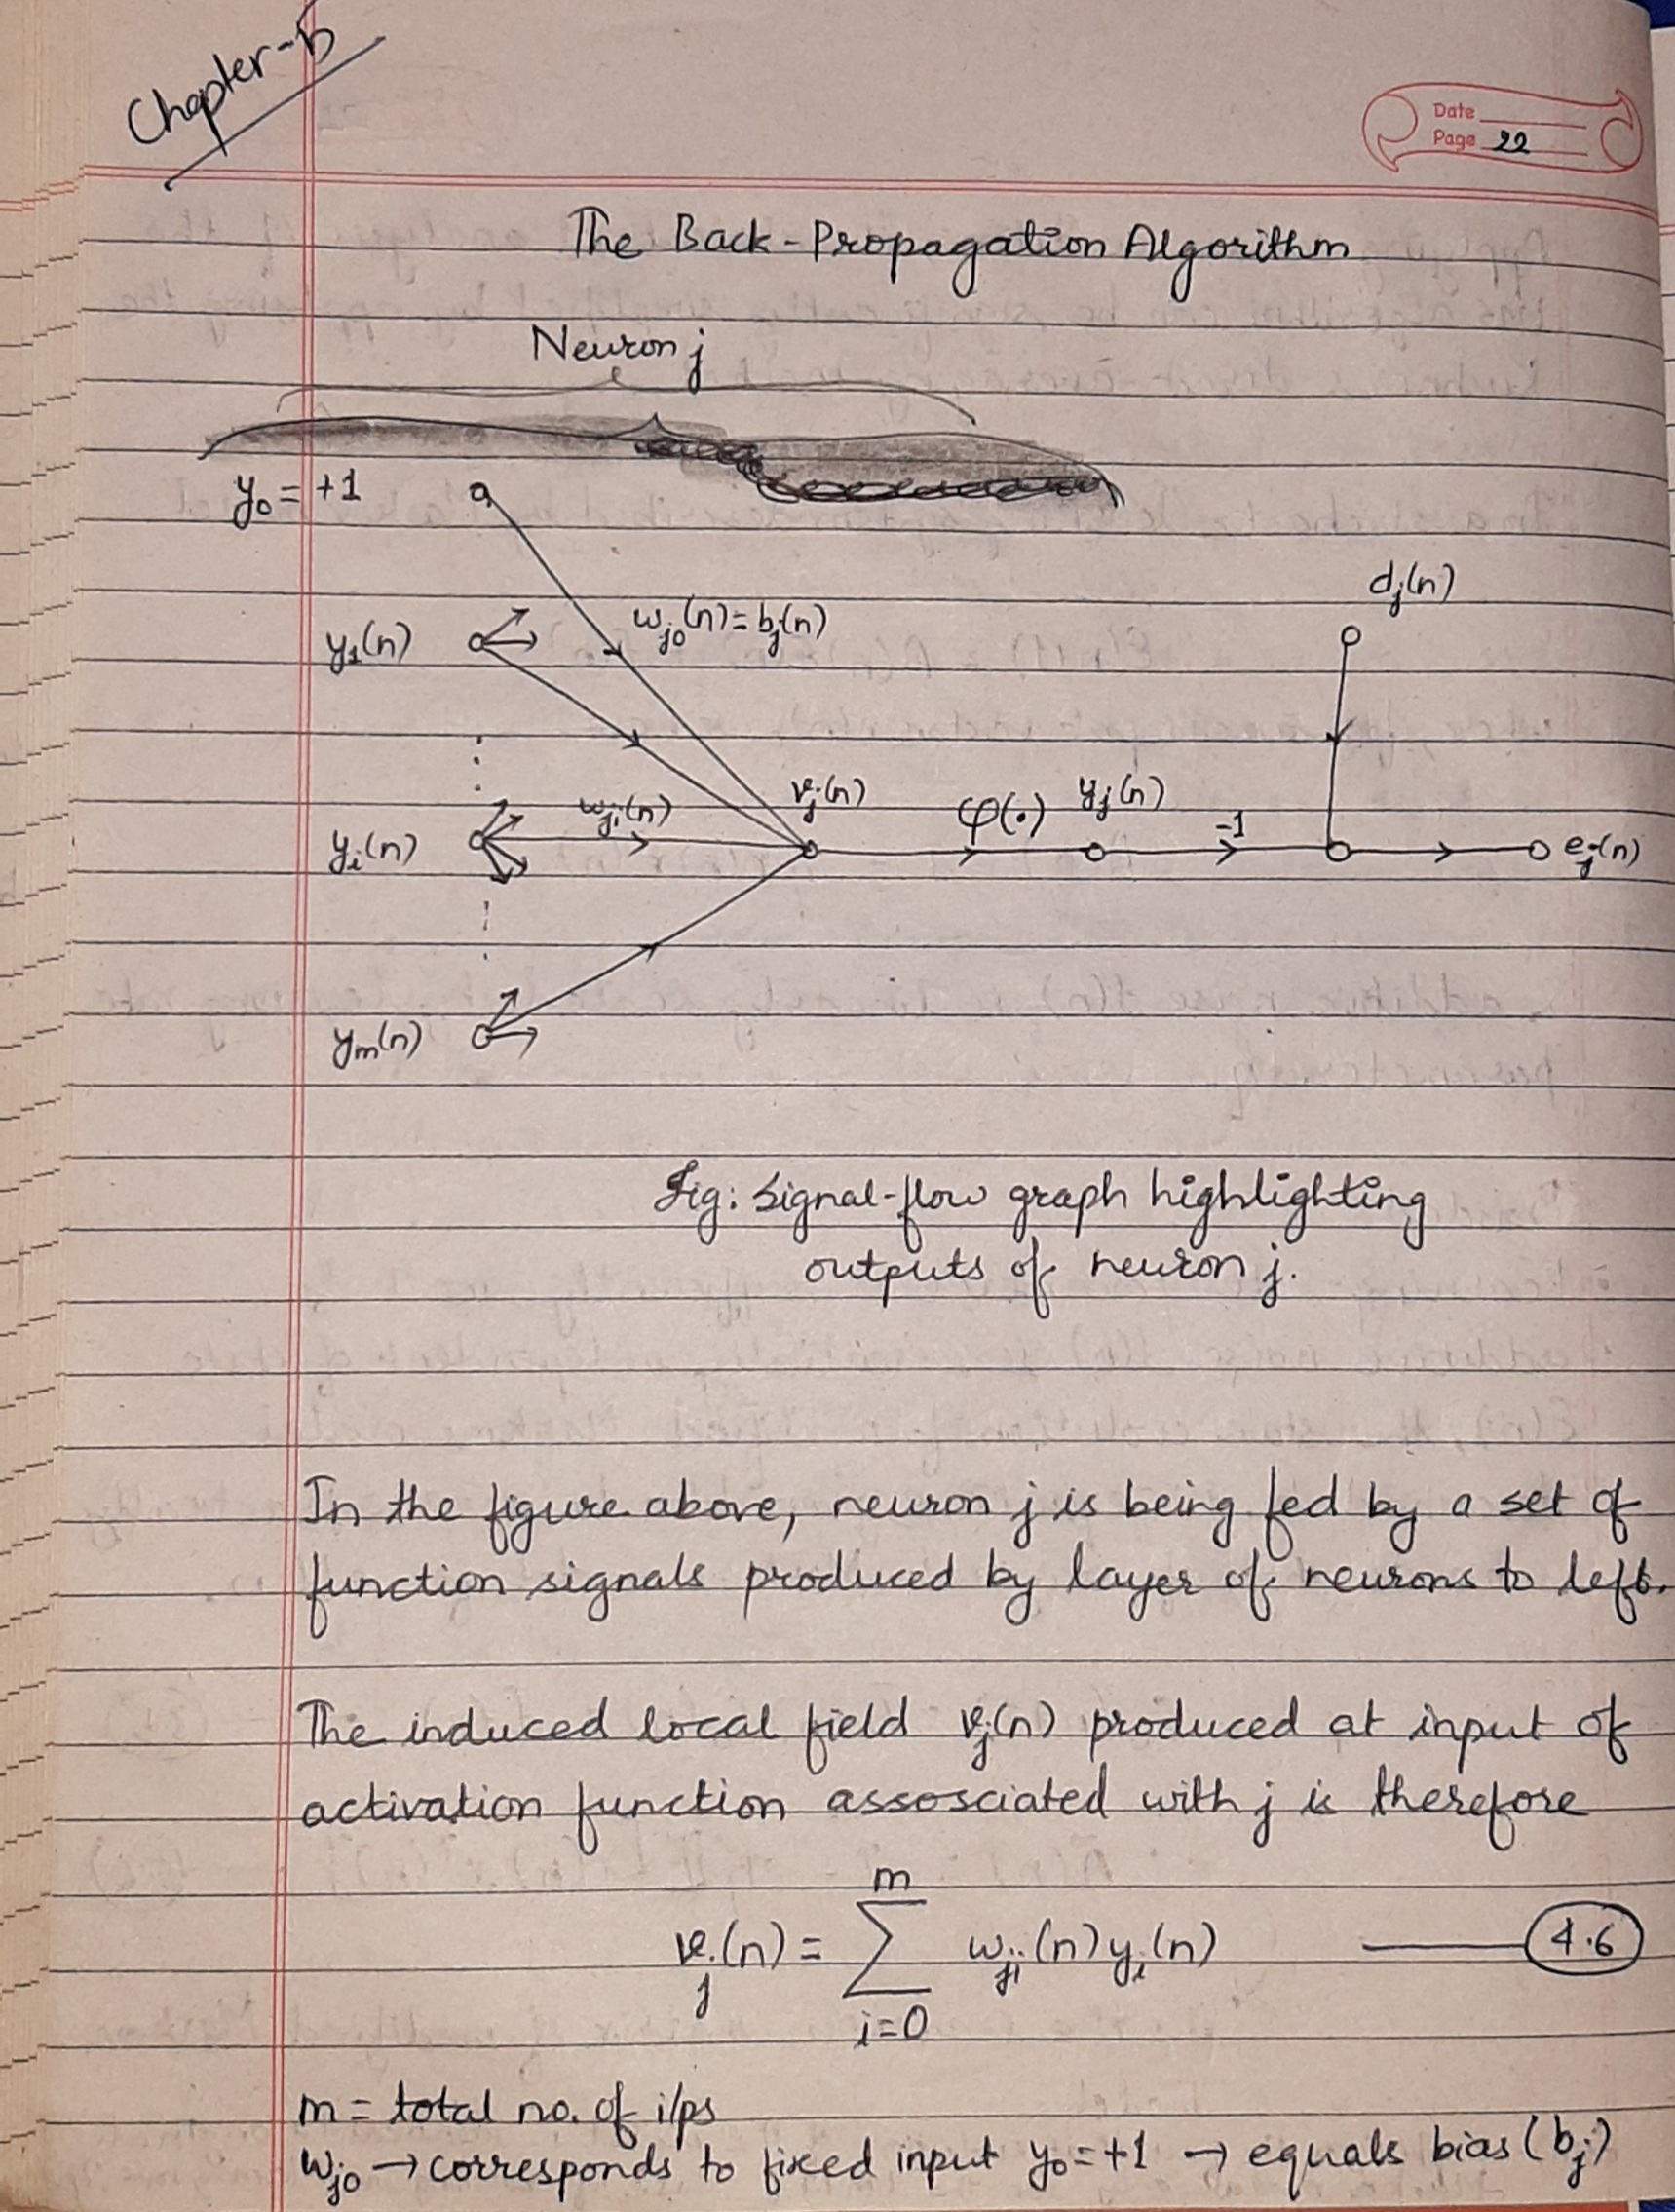 Chapter-5
Date
Page 22
The Back-Propagation Algorithm
Neuron j
y₀ = +1
dⱼ(n)
wⱼ₀(n) = bⱼ(n)
y₁(n)
wⱼᵢ(n) vⱼ(n) φ(·) yⱼ(n) -1
yᵢ(n) eⱼ(n)
yₘ(n)
Fig: Signal-flow graph highlighting
outputs of neuron j.
In the figure above, neuron j is being fed by a set of
function signals produced by layer of neurons to left.
The induced local field vⱼ(n) produced at input of
activation function assosciated with j is therefore
vⱼ(n) = ∑_{i=0}^{m} wⱼᵢ(n) yᵢ(n) — 4.6
m = total no. of i/ps
wⱼ₀ → corresponds to fixed input y₀ = +1 → equals bias (bⱼ)